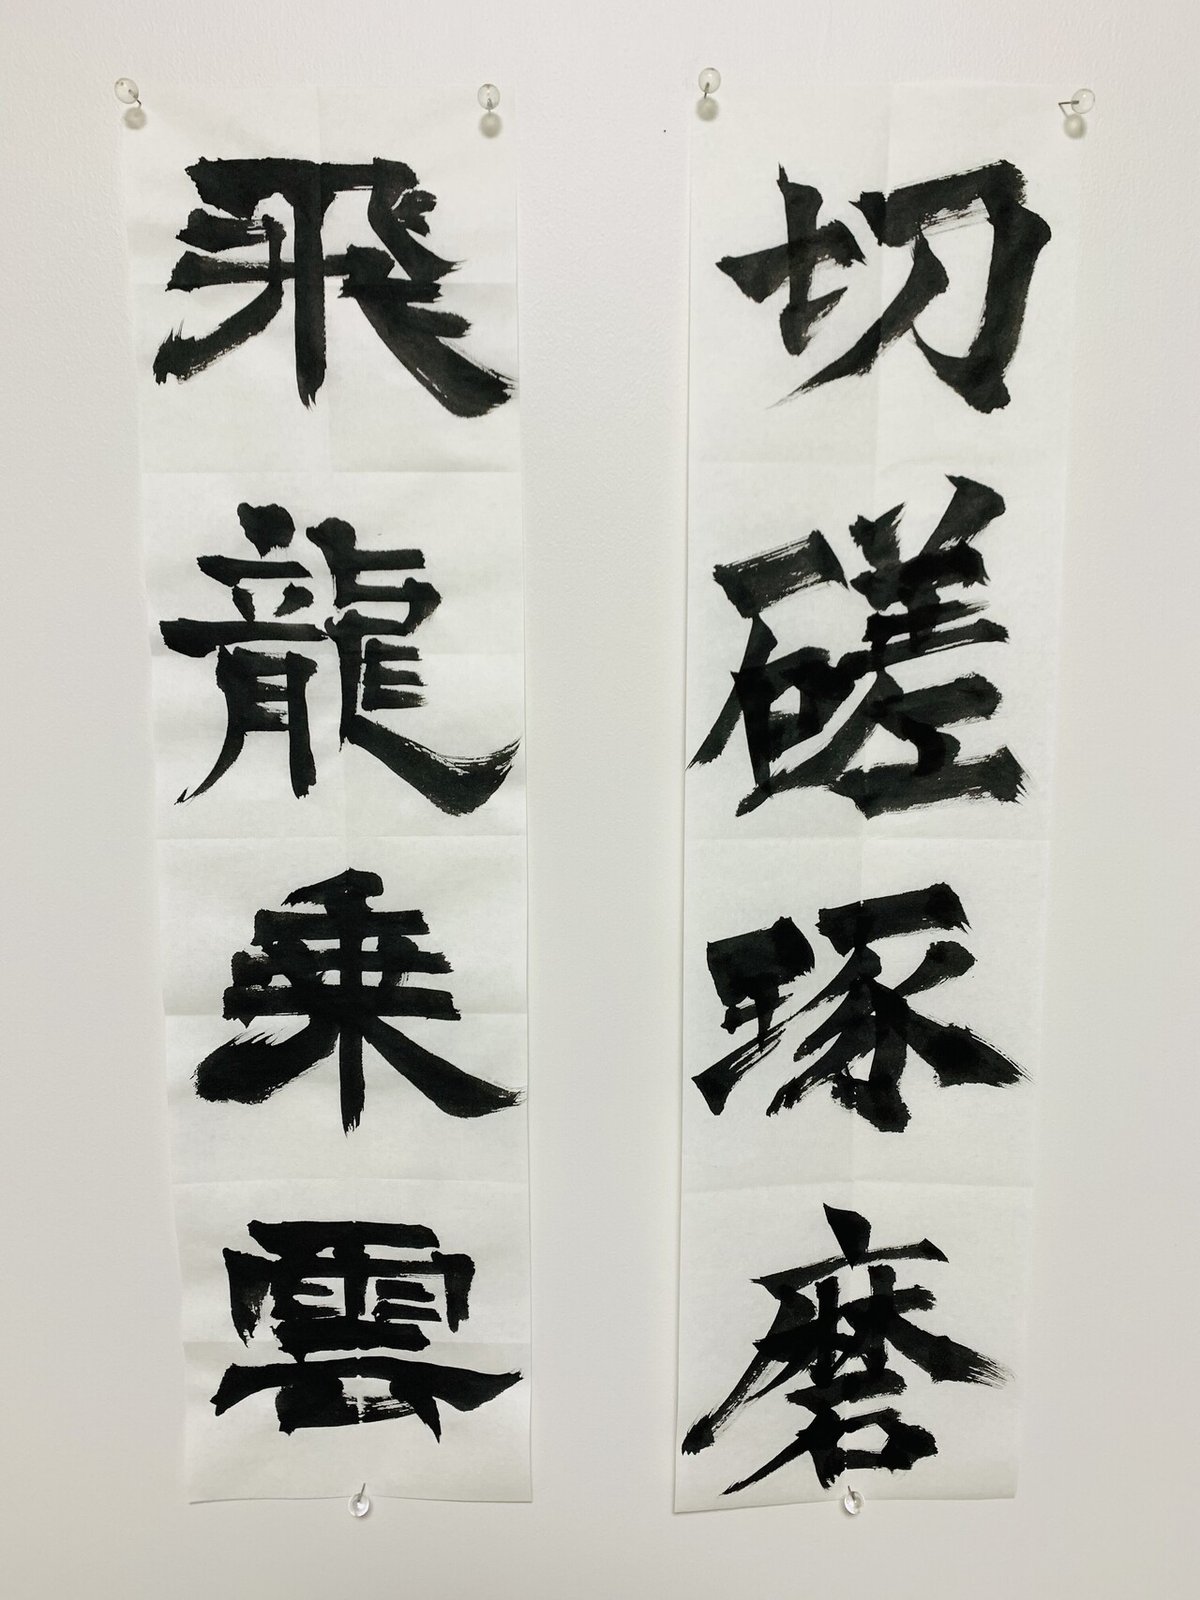 切磋琢磨
飛龍乗雲